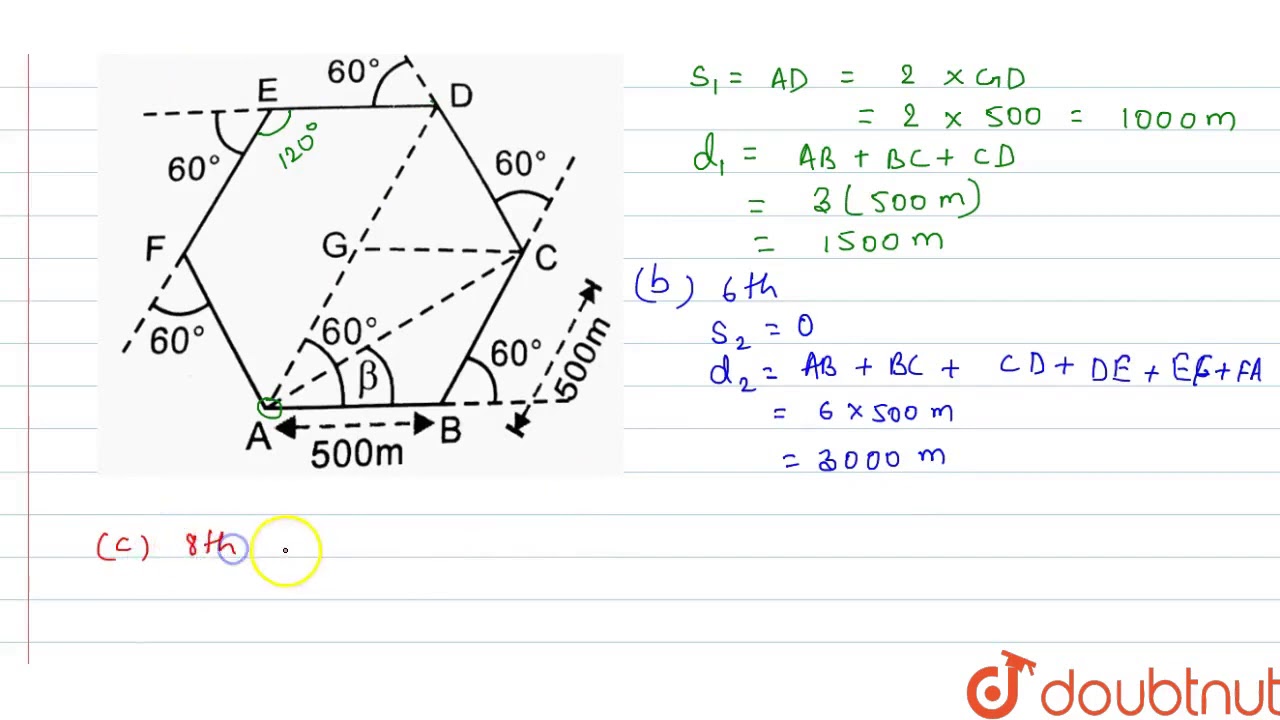 60°
E
D
60°
120°
60°
F
G
C
60°
60°
β
60°
500m
A
500m
B
S₁ = AD = 2 × GD
= 2 × 500 = 1000 m
d₁ = AB + BC + CD
= 3 (500 m)
= 1500 m
(b) 6th
S₂ = 0
d₂ = AB + BC + CD + DE + EF + FA
= 6 × 500 m
= 3000 m
(c) 8th
doubtnut